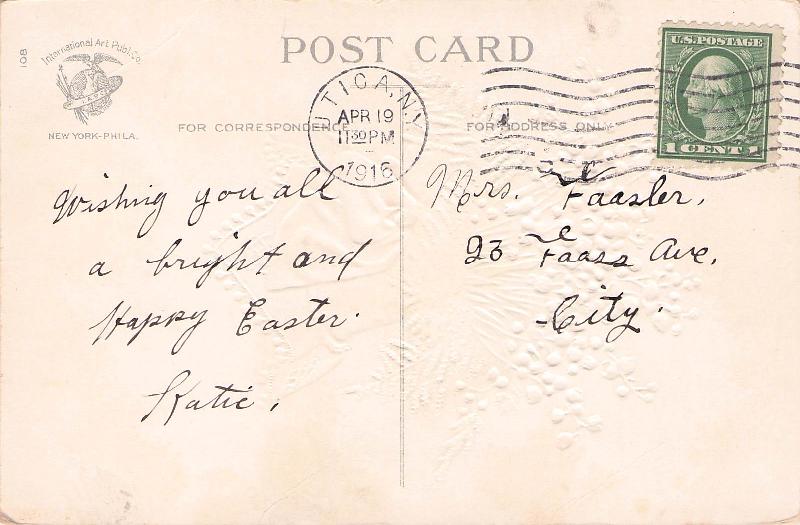 108
International Art Publ. Co.
NEW YORK-PHILA.
POST CARD
FOR CORRESPONDENCE
FOR ADDRESS ONLY
UTICA, N.Y.
APR 19
11 30 PM
1916
U.S. POSTAGE
1 CENT 1
Wishing you all
a bright and
Happy Easter.
Katie.
Mrs. Faasler,
23 Faass Ave,
City.